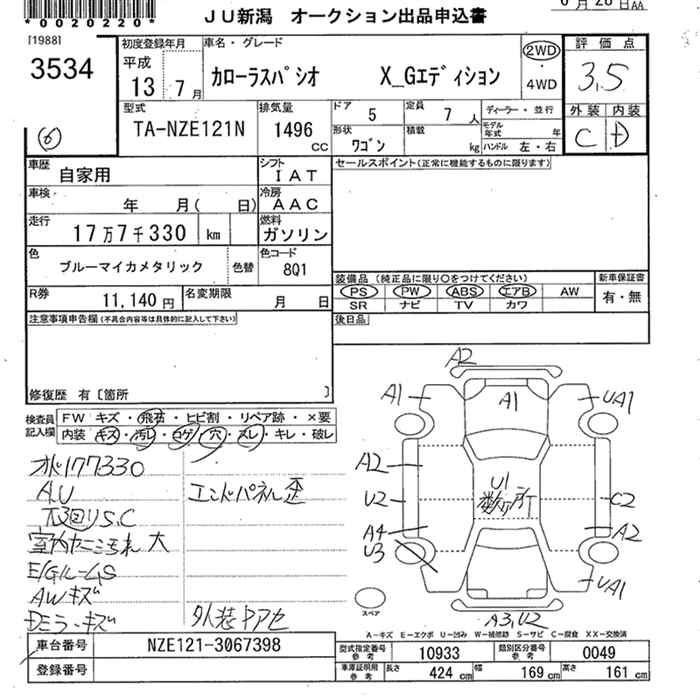 *0020220*
6月28日AA
JU新潟 オークション出品申込書
[1988]
3534
⑥
初度登録年月
平成
13 7月
車名・グレード
カローラスパシオ X_Gエディション
2WD
・
4WD
評価点
3.5
型式
TA-NZE121N
排気量
1496
CC
ドア
5
定員
7人
形状
ワゴン
積載
kg
ディーラー・並行
モデル年式 年
ハンドル 左・右
外装 内装
C D
車歴
自家用
シフト
IAT
セールスポイント(正常に機能するものに限ります)
車検・
年 月( 日)
冷房
AAC
走行
17万7千330 km
燃料
ガソリン
色
ブルーマイカメタリック
色替
色コード
801
R券
11,140円
名変期限
月 日
装備品(純正品に限り○をつけてください)
PS PW ABS エアB AW
SR ナビ TV カワ
新車保証書
有・無
注意事項申告欄(不具合内容等は具体的に記入して下さい)
後日品
修復歴 有〔箇所 〕
検査員記入欄
FW キズ・飛石・ヒビ割・リペア跡・×要
内装 キズ・汚レ・コゲ・穴・スレ・キレ・破レ
オド177330
A.U
エンドパネル歪
下回りS.C
室内ヤニ汚れ大
E/Gルーム S
AWキズ
Dミラーキズ
外装ドアセ
A2
A1
A1
UA1
A2
U2
U1
数ヶ所
C2
A4
A2
U3
UA1
スペア
A3,U2
A-キズ E-エクボ U-凹み W-補修跡 S-サビ C-腐食 XX-交換済
車台番号
NZE121-3067398
登録番号
型式指定番号
参考
10933
類別区分番号
参考
0049
車庫証明用
参考
長さ
424 cm
幅
169 cm
高さ
161 cm